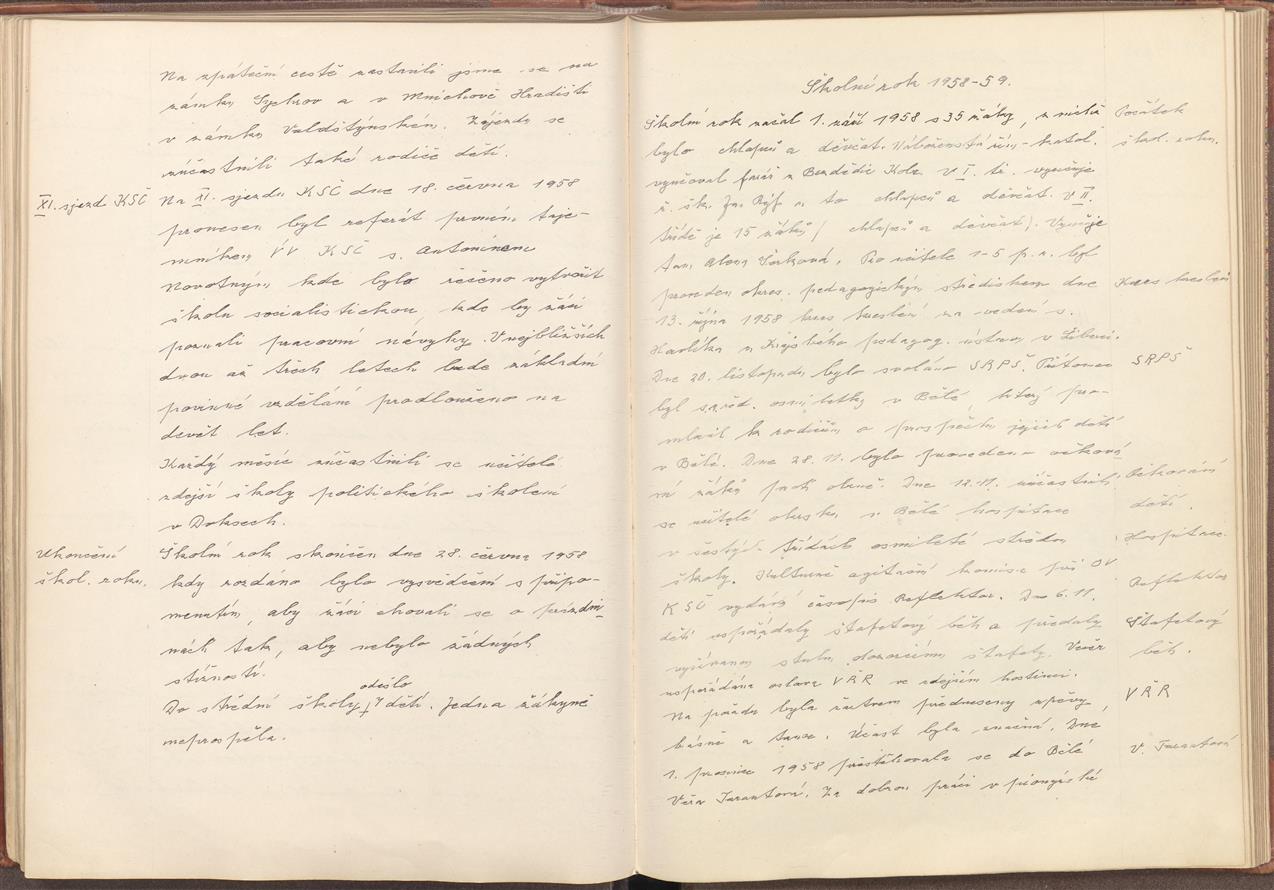 Na zpáteční cestě zastavili jsme se na
zámku Sychrov a v Mnichově Hradišti
v zámku Valdštýnském. Zájezdu se
zúčastnili také rodiče dětí.
XI. sjezd KSČ
Na XI. sjezdu KSČ dne 18. června 1958
pronesen byl referát prvním taje-
mníkem ÚV KSČ s. Antonínem
Novotným kde bylo řečeno vytvořit
školu socialistickou, kde by žáci
poznali pracovní návyky. V nejbližších
dvou až třech letech bude základní
povinné vzdělání prodlouženo na
devět let.
Každý měsíc zúčastnili se učitelé
zdejší školy politického školení
v Doksech.
Ukončení
škol. roku.
Školní rok skončen dne 28. června 1958
kdy rozdáno bylo vysvědčení s připo-
menutím, aby žáci chovali se o prázdni-
nách tak, aby nebylo žádných
stížností.
odešlo
Do střední školy 7 dětí. Jedna žákyně
neprospěla.
Školní rok 1958-59.
Školní rok začal 1. září 1958 s 35 žáky, z nichž
Počátek
bylo chlapců a děvčat. Náboženství řím.-katol.
škol. roku.
vyučoval farář z Bezdědic Kolr. V I. tř. vyučuje
ř. šk. Jn. Rýf a to chlapců a děvčat. V II.
třídě je 15 žáků ( chlapců a děvčat). Vyučuje
tam Alena Šorková. Pro učitele 1-5 p. r. byl
proveden okres. pedagogickým střediskem dne
Kurs kreslení
13. října 1958 kurs kreslení za vedení s.
Havlíka z Krajského pedagog. ústavu v Liberci.
Dne 20. listopadu bylo svoláno SRPŠ. Přítomen
SRPŠ
byl s. řed. osmiletky v Bělé který pro-
mluvil k rodičům o prospěchu jejich dětí
v Bělé. Dne 28. 11. bylo provedeno očková-
ní žáků proti obrně. Dne 12. 11. zúčastnili
Očkování
se učitelé okrsku v Bělé hospitace
dětí.
v šestých třídách osmileté střední
Hospitace.
školy. Kulturně agitační komise při OV
KSČ vydává časopis Reflektor. Dne 6. 11.
Reflektor
děti uspořádaly štafetový běh a předaly
Štafetový
vyšívanou stuhu dozorčímu štafety. Večer
běh.
uspořádána oslava VŘR ve zdejším hostinci.
Na pořadu byla žactvem předneseny zpěvy,
VŘR
básně a tance. Účast byla značná. Dne
1. prosince 1958 přistěhovala se do Bělé
V. Tarantová
Věra Tarantová. Za dobrou práci v pionýrské